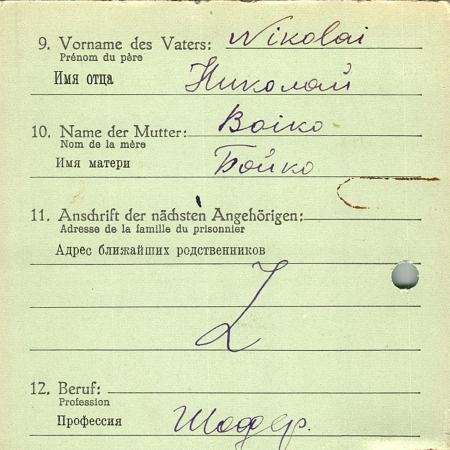 9. Vorname des Vaters: Nikolai
Prénom du père
Имя отца Николай
10. Name der Mutter: Boiko
Nom de la mère
Имя матери Бойко
11. Anschrift der nächsten Angehörigen:
Adresse de la famille du prisonnier
Адрес ближайших родственников
12. Beruf:
Profession
Профессия Шофер.